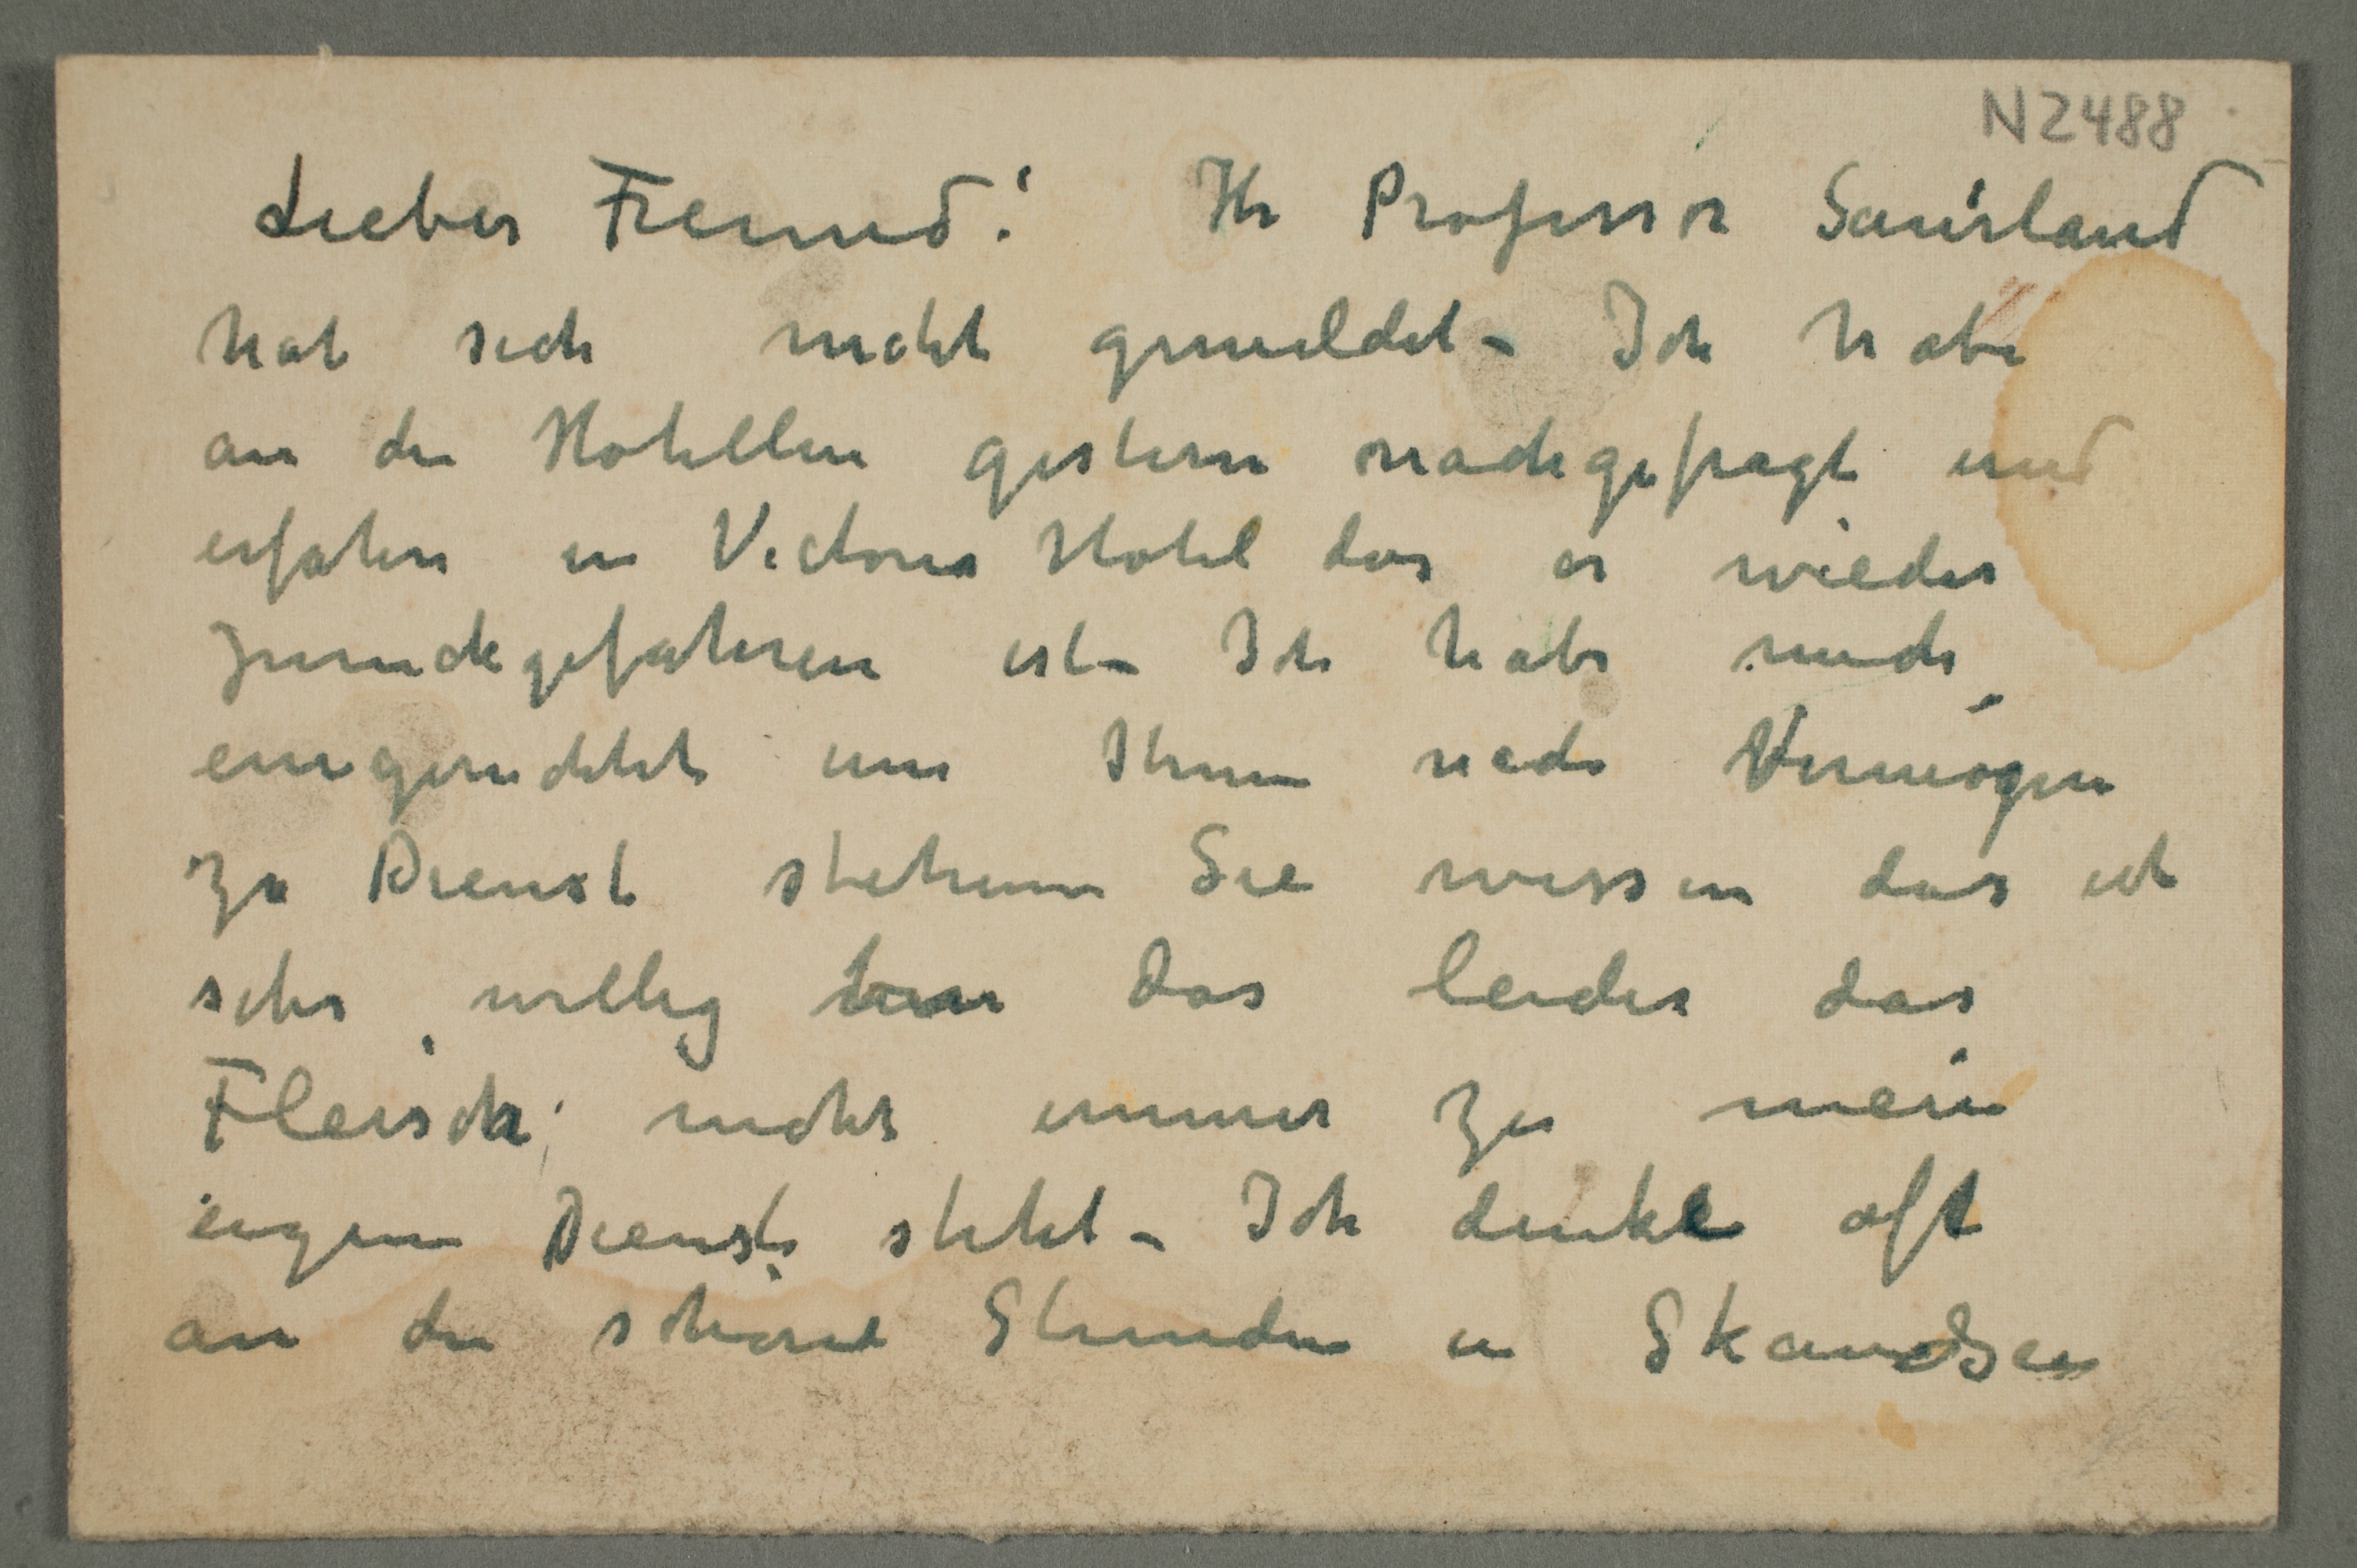 N2488
Lieber Freund! Hr Professor Sauerland
hat sich nicht gemeldet – Ich habe
an die Hotellen gestern nachgefragt und
erfahren in Victoria Hotel das er wieder
zuruckgefahren ist – Ich habe mich
eingerichtet um Ihnen nach Vermögen
zu Dienst stehenn Sie wissen das ich
sehr willig bin das leider das
Fleisch nicht immer zu mein
eigenen Dienste steht – Ich denke oft
an die schöne Stunden in